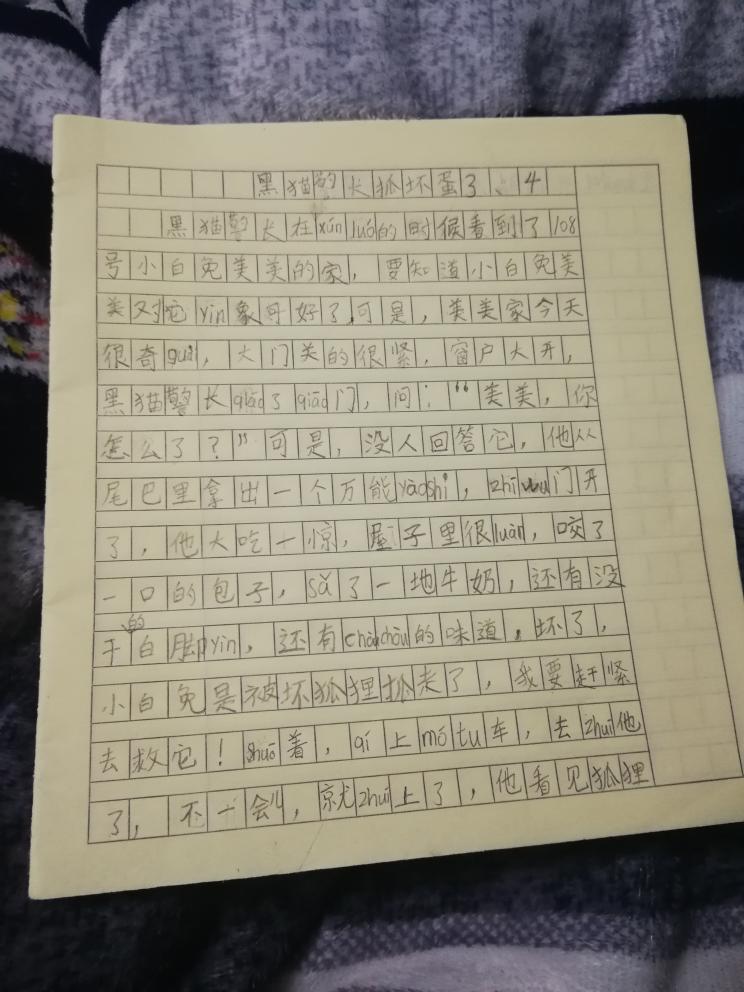 黑猫警长抓坏蛋3、4
黑猫警长在xún luó的时候看到了108
号小白兔美美的家，要知道小白兔美
美对它yìn象可好了，可是，美美家今天
很奇guài，大门关的很紧，窗户大开，
黑猫警长qiāo了qiāo门，问：“美美，你
怎么了？”可是，没人回答它，他从
尾巴里拿出一个万能yàoshi，zhī门开
了，他大吃一惊，屋子里很luàn，咬了
一口的包子，sǎ了一地牛奶，还有没
干的白脚yìn，还有chòuchòu的味道，坏了，
小白兔是被坏狐狸抓走了，我要赶紧
去救它！shuō着，qí上mótu车，去zhuī他
了，不一会儿，就zhuī上了，他看见狐狸